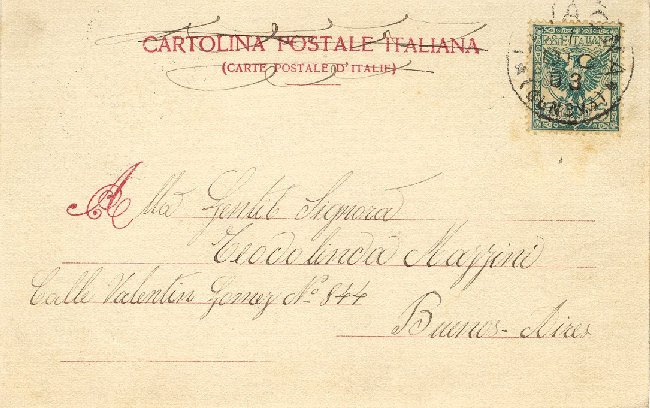 CARTOLINA POSTALE ITALIANA
(CARTE POSTALE D'ITALIE)
Alla Gentil Signora
Teodolinda Mazzini
Calle Valentin Gomez Nº 844
Buenos-Aires